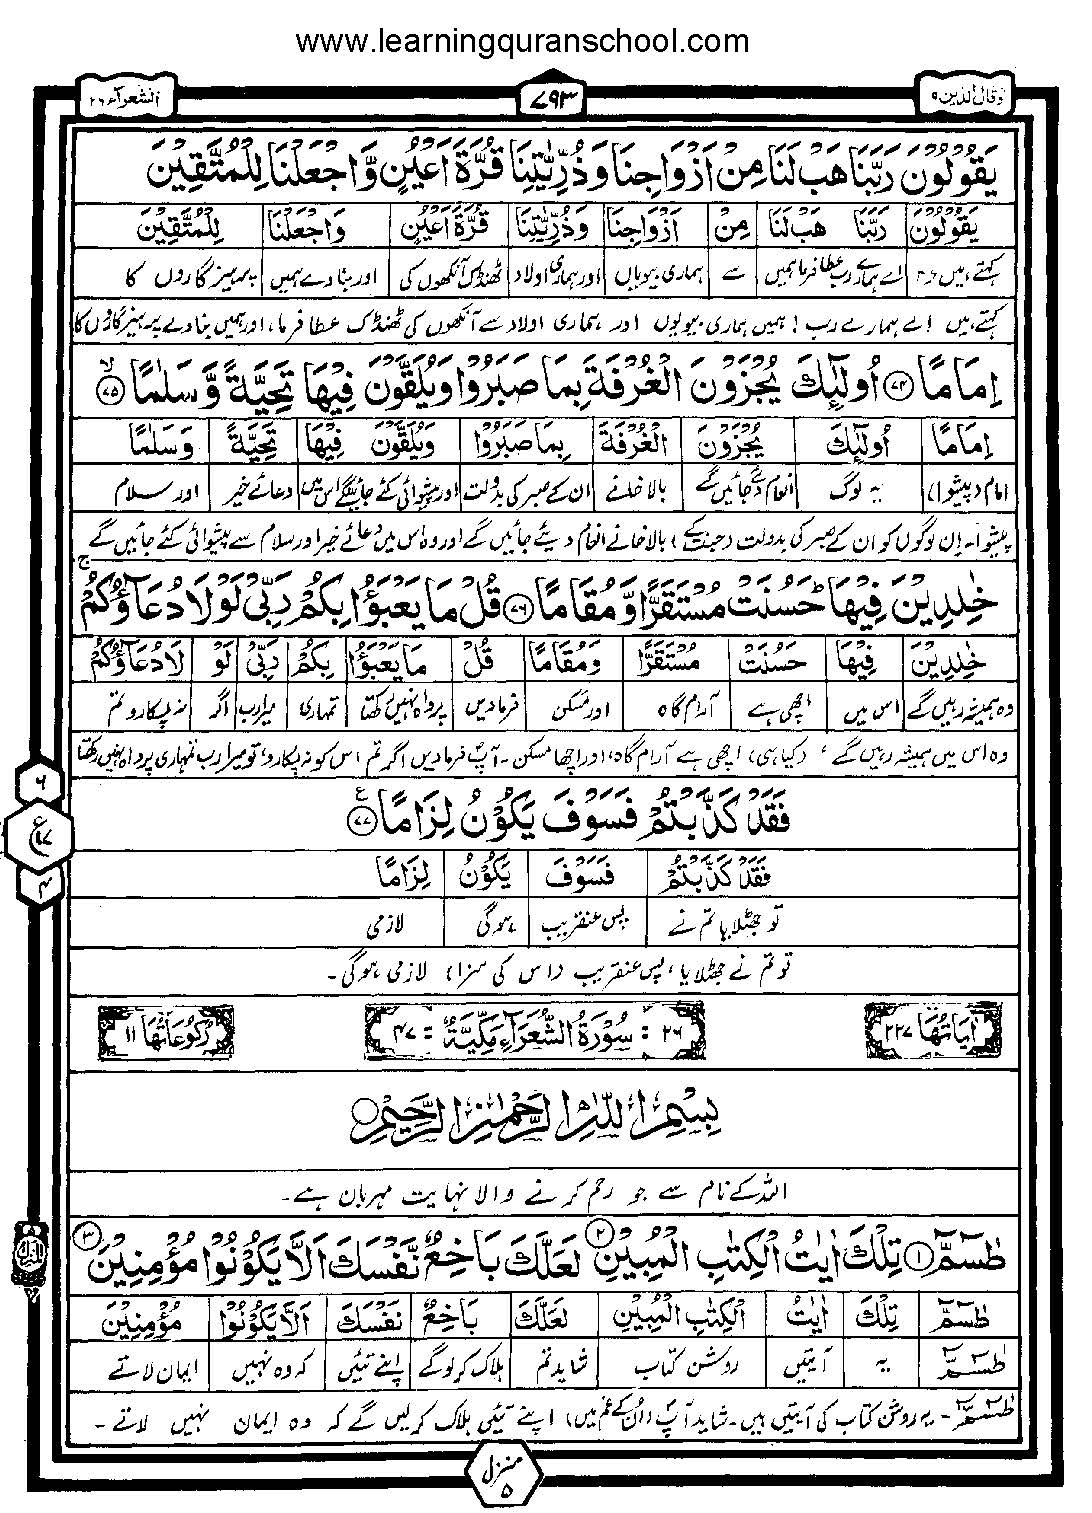 www.learningquranschool.com
وقال الذين ۱۹
۷۹۳
الشعرآء ۲۶
يَقُوْلُوْنَ رَبَّنَا هَبْ لَنَا مِنْ اَزْوَاجِنَا وَذُرِّيّٰتِنَا قُرَّةَ اَعْيُنٍ وَّاجْعَلْنَا لِلْمُتَّقِيْنَ
يَقُوْلُوْنَ رَبَّنَا هَبْ لَنَا مِنْ اَزْوَاجِنَا وَذُرِّيّٰتِنَا قُرَّةَ اَعْيُنٍ وَاجْعَلْنَا لِلْمُتَّقِيْنَ
کہتے ہیں وہ اے ہمارے رب عطا فرما ہمیں سے ہماری بیویاں اور ہماری اولاد ٹھنڈک آنکھوں کی اور بنا دے ہمیں پرہیزگاروں کا
کہتے ہیں اے ہمارے رب! ہمیں ہماری بیویوں اور ہماری اولاد سے آنکھوں کی ٹھنڈک عطا فرما، اور ہمیں بنا دے پرہیزگاروں کا
اِمَامًا ۷۴ اُولٰٓئِكَ يُجْزَوْنَ الْغُرْفَةَ بِمَا صَبَرُوْا وَيُلَقَّوْنَ فِيْهَا تَحِيَّةً وَّسَلٰمًا ۷۵ لا
اِمَامًا اُولٰٓئِكَ يُجْزَوْنَ الْغُرْفَةَ بِمَا صَبَرُوْا وَيُلَقَّوْنَ فِيْهَا تَحِيَّةً وَسَلٰمًا
امام (پیشوا) یہ لوگ انعام دئے جائیں گے بالاخانے ان کے صبر کی بدولت اور پیشوائی کئے جائینگے اس میں دعائے خیر اور سلام
پیشوا۔ ان لوگوں کو ان کے صبر کی بدولت (جنت کے) بالاخانے انعام دیئے جائیں گے اور وہ اس میں دعائے خیر اور سلام سے پیشوائی کئے جائیں گے
خٰلِدِيْنَ فِيْهَا ط حَسُنَتْ مُسْتَقَرًّا وَّمُقَامًا ۷۶ قُلْ مَا يَعْبَؤُا بِكُمْ رَبِّيْ لَوْلَا دُعَآؤُكُمْ ج
خٰلِدِيْنَ فِيْهَا حَسُنَتْ مُسْتَقَرًّا وَمُقَامًا قُلْ مَا يَعْبَؤُا بِكُمْ رَبِّيْ لَوْ لَا دُعَاؤُكُمْ
وہ ہمیشہ رہیں گے اس میں اچھی ہے آرام گاہ اور مسکن فرما دیں پرواہ نہیں رکھتا تمہاری میرا رب اگر نہ پکارو تم
وہ اس میں ہمیشہ رہیں گے، (کیا ہی) اچھی ہے آرام گاہ، اور اچھا مسکن۔ آپؐ فرما دیں اگر تم اس کو نہ پکارو، تو میرا رب تمہاری پرواہ نہیں رکھتا
فَقَدْ كَذَّبْتُمْ فَسَوْفَ يَكُوْنُ لِزَامًا ۷۷ ع
فَقَدْ كَذَّبْتُمْ فَسَوْفَ يَكُوْنُ لِزَامًا
تو جھٹلایا تم نے پس عنقریب ہوگی لازمی
تو تم نے جھٹلایا، پس عنقریب (اس کی سزا) لازمی ہوگی۔
۶
ع ۱۷
۴
اٰيَاتُهَا ۲۲۷
۲۶: سُوْرَةُ الشُّعَرَآءِ مَكِّيَّةٌ: ۴۷
رُكُوْعَاتُهَا ۱۱
بِسْمِ اللّٰهِ الرَّحْمٰنِ الرَّحِيْمِ
اللہ کے نام سے جو رحم کرنے والا نہایت مہربان ہے۔
طٰسٓمّٓ ۱ تِلْكَ اٰيٰتُ الْكِتٰبِ الْمُبِيْنِ ۲ لَعَلَّكَ بَاخِعٌ نَّفْسَكَ اَلَّا يَكُوْنُوْا مُؤْمِنِيْنَ ۳
طٰسٓمّٓ تِلْكَ اٰيٰتُ الْكِتٰبِ الْمُبِيْنِ لَعَلَّكَ بَاخِعٌ نَفْسَكَ اَلَّا يَكُوْنُوْا مُؤْمِنِيْنَ
طٰسٓمّٓ یہ آیتیں روشن کتاب شاید تم ہلاک کر لوگے اپنے تئیں کہ وہ نہیں ایمان لاتے
طٰسٓمّٓ۔ یہ روشن کتاب کی آیتیں ہیں۔ شاید آپؐ (ان کے غم میں) اپنے تئیں ہلاک کر لیں گے کہ وہ ایمان نہیں لاتے۔
منزل
۵